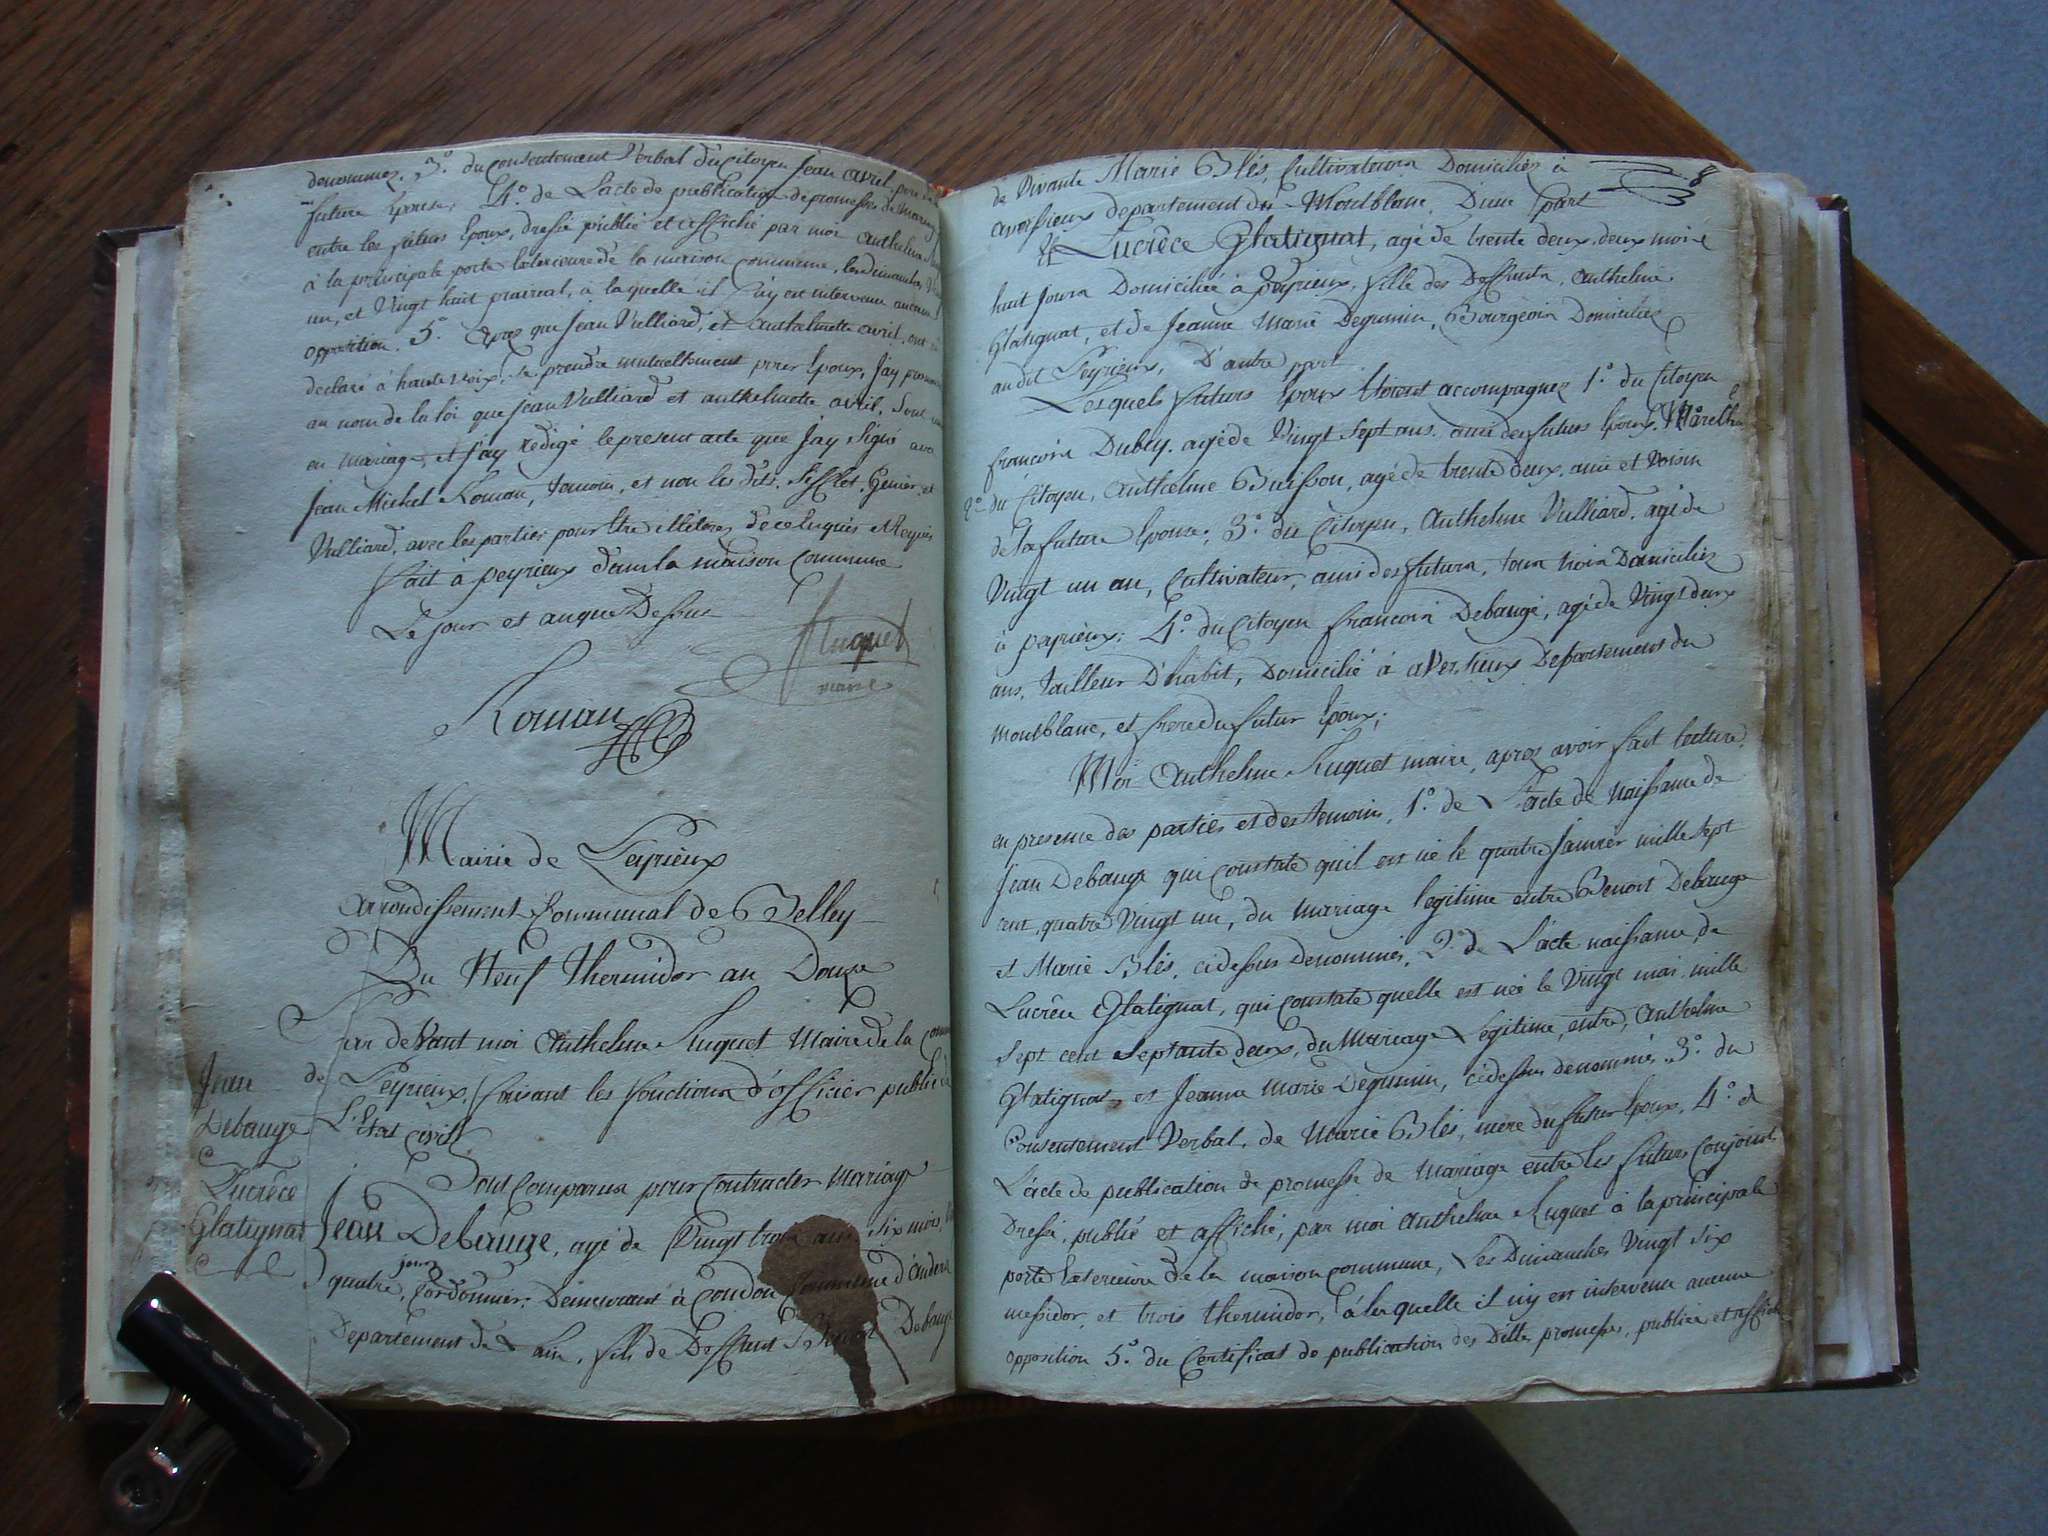 denommez. 3.° du consentement Verbal du Citoyen Jean avril, pere de la
future Epouse; 4.° de L'acte de publication de promesses de mariage
entre les futurs Epoux, dressé publié et affiché par moi Anthelme
à la principale porte Exterieure de la maison Commune, les dimanches Vingt
un, et Vingt huit prairial, à la quelle il n'y est intervenu aucune
opposition. 5.° Après que Jean Vulliard, et anthelmette avril, ont eu
declaré à haute voix, se prendre mutuellement pour Epoux, J'ay prononcé
au nom de la loi que Jean Vulliard et anthelmette avril, Sont unis
en mariage, et J'ay redigé le present acte que J'ay Signé avec
Jean Michel Roman, temoin, et non les dits. Sifflet, Genier, et
Vulliard, avec les parties pour Etre illitérez de ce Enquis et Requis
fait à peyrieux dans la maison Commune
Le jour et an que Dessus
Ruquet
maire
Roman
Mairie de Peyrieux
Arrondissement Communal de Belley
Du Neuf thermidor an Douze
Par devant moi Anthelme Ruquet Maire de la Commune
de Peyrieux, faisant les fonctions d'officier public de
L'Etat Civil
Jean
Debauge
Lucrèce
Glatignat
Sont Comparus pour Contracter Mariage
Jean Debauge, agé de Vingt trois ans six mois,
quatre jours, Cordonnier, Demeurant à Condon Commune d'Andert
Departement de L'ain, fils de Deffunt Benoit Debauge
8
de Vivante Marie Blés, Cultivateurs Domiciliés à
avorsieux departement du Montblanc, D'une part
Et Lucrèce Glatignat, agé de trente deux, deux mois
huit Jours Domiciliée à Peyrieux, fille des Deffunts, Anthelme
Glatignat, et de Jeanne Marie Degumin, Bourgeois Domiciliés
audit Peyrieux, D'autre part.
Lesquels futurs Epoux Etoient accompagnez 1.° du Citoyen
françois Dubey, agé de Vingt Sept ans, ami des futurs Epoux,
2.° du Citoyen, Anthelme Buisson, agé de trente deux, ami et Voisin
de la future Epouse; 3.° du Citoyen, Anthelme Vulliard, agé de
Vingt un an, Cultivateur, ami des futurs, tous trois Domiciliés
à peyrieux; 4.° du Citoyen françois Debauge, agé de Vingt deux
ans, tailleur D'habit, Domicilié à aversieux Departement du
Montblanc, et frere du futur Epoux;
Moi Anthelme Ruquet maire, apres avoir fait lecture,
en presence des parties et des temoins, 1.° de L'acte de Naissance de
Jean Debauge qui Constate qu'il est né le quatre Janvier mille Sept
cent, quatre Vingt un, du Mariage legitime entre Benoit Debauge
et Marie Blés, cidessus denommés, 2.° de L'acte naissance, de
Lucrèce Glatignat, qui Constate quelle est née le Vingt mai, mille
Sept cent Septante deux, du Mariage Legitime, entre, Anthelme
Glatignat, et Jeanne Marie Degumin, cidessus denommés, 3.° du
Consentement Verbal, de Marie Blés, mère du futur Epoux, 4.° de
L'acte de publication de promesse de Mariage entre les futurs Conjoints
Dressé, publié et affiché, par moi Anthelme Ruquet à la principale
porte Exterieure de la maison commune, les Dimanches Vingt Six
messidor, et trois thermidor, à la quelle il n'y est intervenu aucune
opposition 5.° du Certificat de publication des Dittes promesses, publiée, et affiché